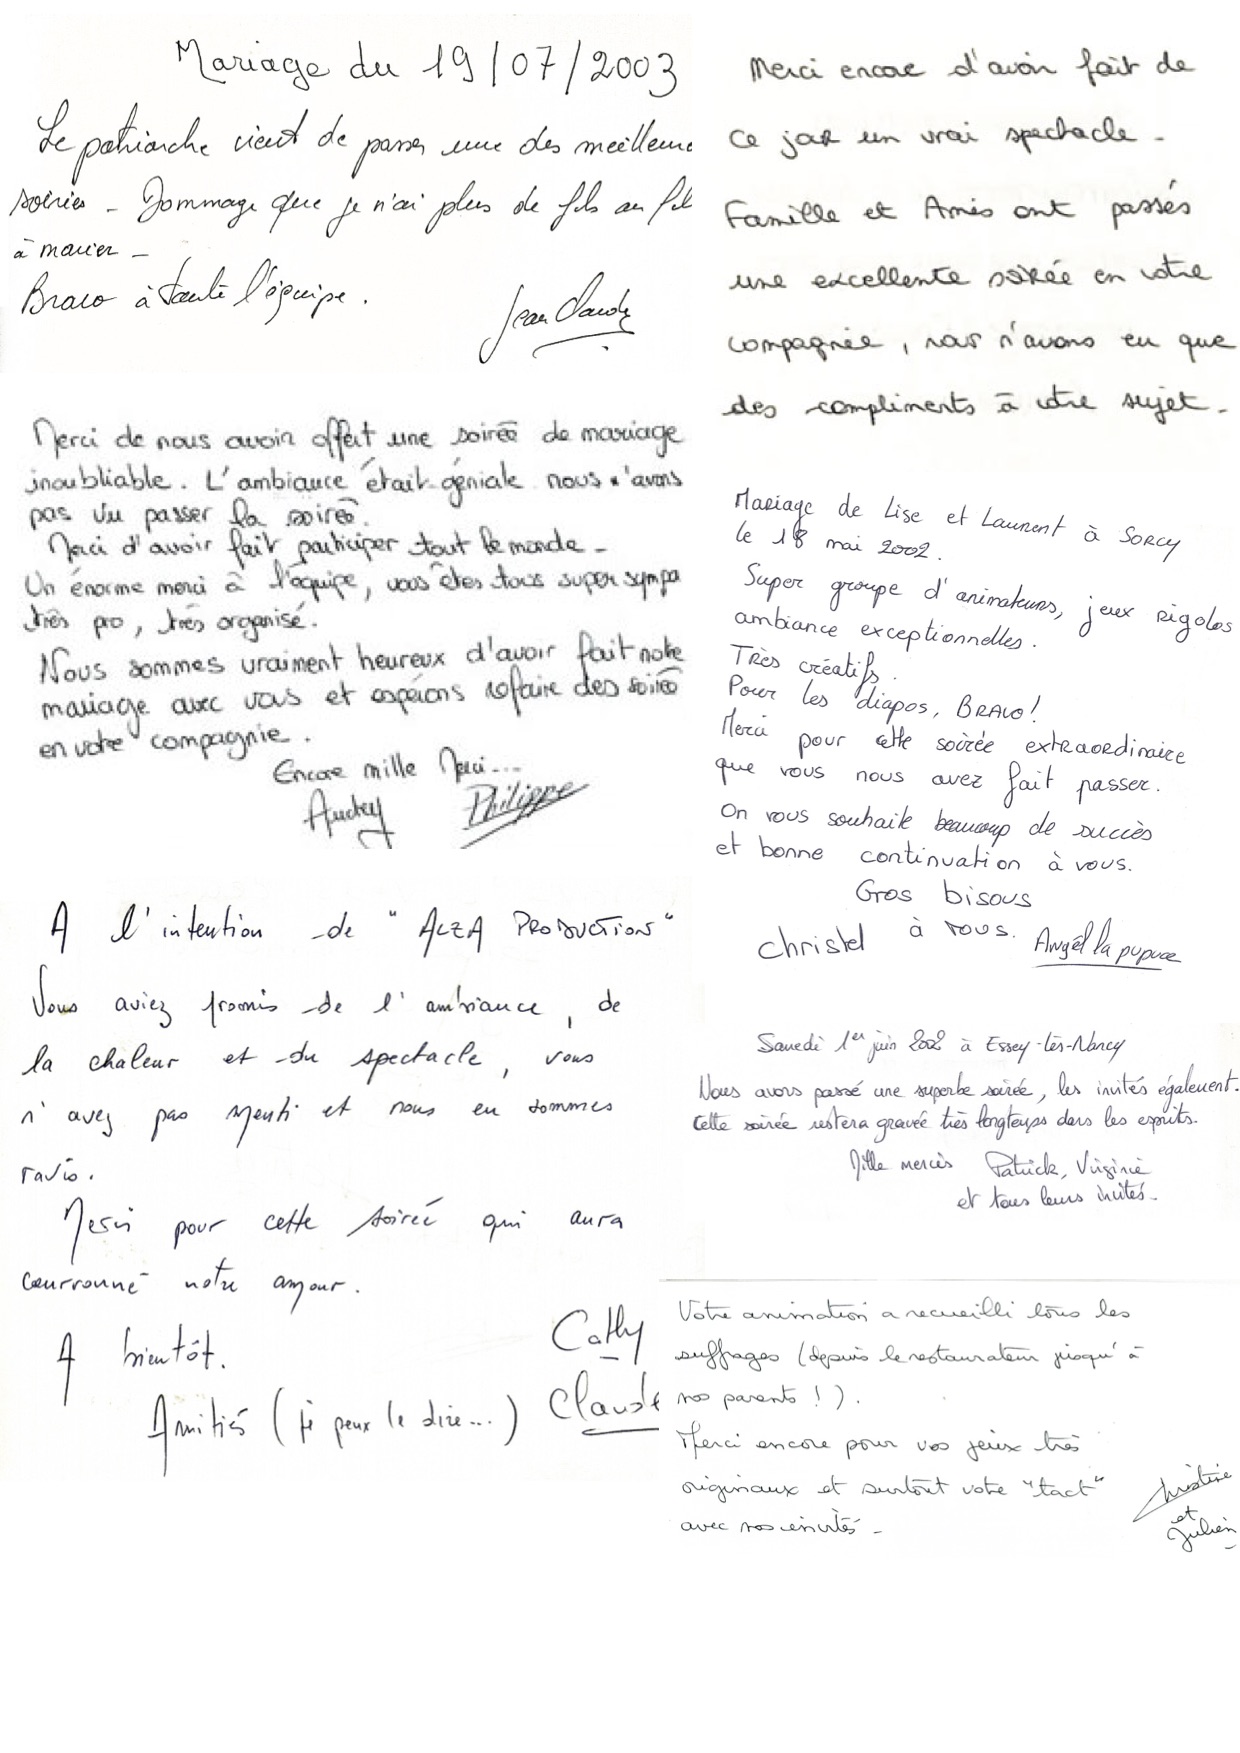 Mariage du 19/07/2003
Le patriarche vient de passer une des meilleure
soirées - Dommage que je n'ai plus de fils ou fil
à marier -
Bravo à toute l'équipe.
Jean Claude
Merci de nous avoir offert une soirée de mariage
inoubliable. L'ambiance était géniale nous n'avons
pas vu passer la soirée.
Merci d'avoir fait participer tout le monde -
Un énorme merci à l'équipe, vous êtes tous super sympa
très pro, très organisé.
Nous sommes vraiment heureux d'avoir fait notre
mariage avec vous et espérons refaire des soirées
en votre compagnie.
Encore mille Merci...
Audrey Philippe
A l'intention de "ALZA PRODUCTION"
Vous aviez promis de l'ambiance, de
la chaleur et du spectacle, vous
n'avez pas menti et nous en sommes
ravis.
Merci pour cette soirée qui aura
courronné notre amour.
A bientôt.
Amitiés (je peux le dire...)
Cathy
Claude
Merci encore d'avoir fait de
ce jour un vrai spectacle -
Famille et Amis ont passés
une excellente soirée en votre
compagnie, nous n'avons eu que
des compliments à votre sujet -
Mariage de Lise et Laurent à SORCY
le 18 mai 2002.
Super groupe d'animateurs, jeux rigolos
ambiance exceptionnelles.
Très créatifs.
Pour les diapos, BRAVO!
Merci pour cette soirée extraordinaire
que vous nous avez fait passer.
On vous souhaite beaucoup de succès
et bonne continuation à vous.
Gros bisous
à vous.
Christel Angél la pupuce
Samedi 1er juin 2002 à Essey-lès-Nancy
Nous avons passé une superbe soirée, les invités également.
Cette soirée restera gravée très longtemps dans les esprits.
Mille mercis Patrick, Virginie
et tous leurs invités -
Votre animation a recueilli tous les
suffrages (depuis le restaurateur jusqu'à
nos parents !).
Merci encore pour vos jeux très
originaux et surtout votre "tact"
avec nos invités -
Christine
et
Julien